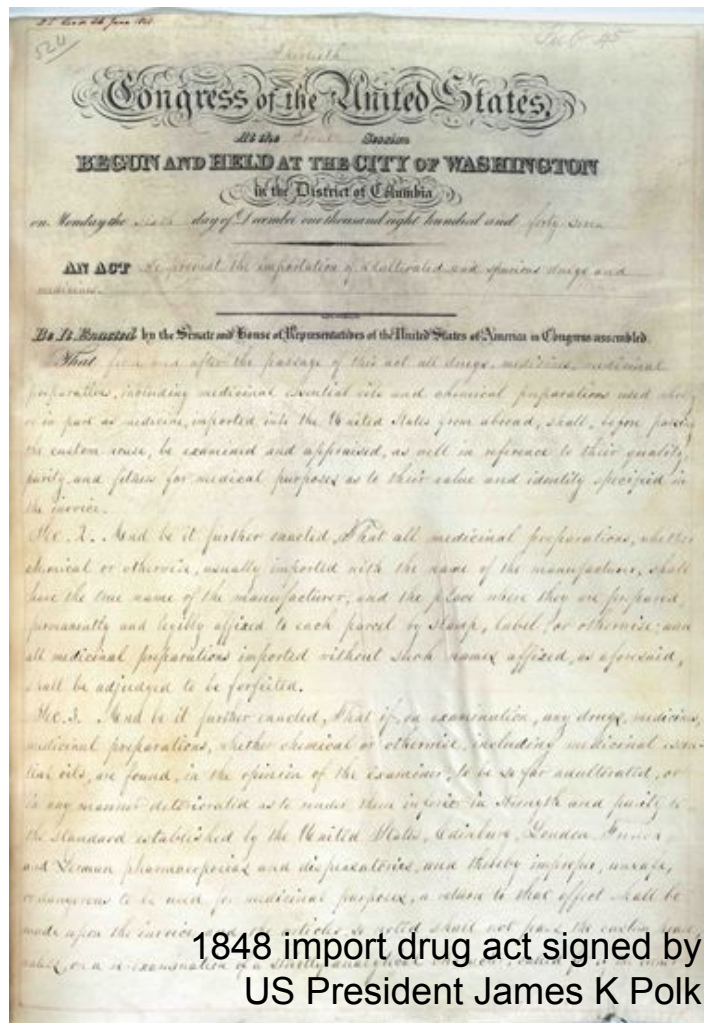 524
Thirtieth
Congress of the United States,
At the First Session
BEGUN AND HELD AT THE CITY OF WASHINGTON
in the District of Columbia
on Monday the sixth day of December one thousand eight hundred and forty seven
AN ACT To prevent the importation of adulterated and spurious drugs and
medicines.
Be It Enacted by the Senate and House of Representatives of the United States of America in Congress assembled
That from and after the passage of this act all drugs, medicines, medicinal
preparations, including medicinal essential oils and chemical preparations used wholly
or in part as medicine, imported into the United States from abroad, shall, before passing
the custom house, be examined and appraised, as well in reference to their quality,
purity and fitness for medical purposes as to their value and identity specified in
the invoice.
Sec. 2. And be it further enacted, That all medicinal preparations, whether
chemical or otherwise, usually imported with the name of the manufacturer, shall
have the true name of the manufacturer, and the place where they are prepared,
permanently and legibly affixed to each parcel by stamp, label, or otherwise; and
all medicinal preparations imported without such names affixed, as aforesaid,
shall be adjudged to be forfeited.
Sec. 3. And be it further enacted, That if, on examination, any drugs, medicines,
medicinal preparations, whether chemical or otherwise, including medicinal essen-
tial oils, are found, in the opinion of the examiner, to be so far adulterated, or
in any manner deteriorated as to render them inferior in strength and purity to
the standard established by the United States, Edinburg, London, French
and German pharmacopoeias and dispensatories, and thereby improper, unsafe,
or dangerous to be used for medicinal purposes, a return to that effect shall be
made upon the invoice, and the articles so noted shall not pass the custom house
unless, on a re-examination of a strictly analytical
1848 import drug act signed by
US President James K Polk